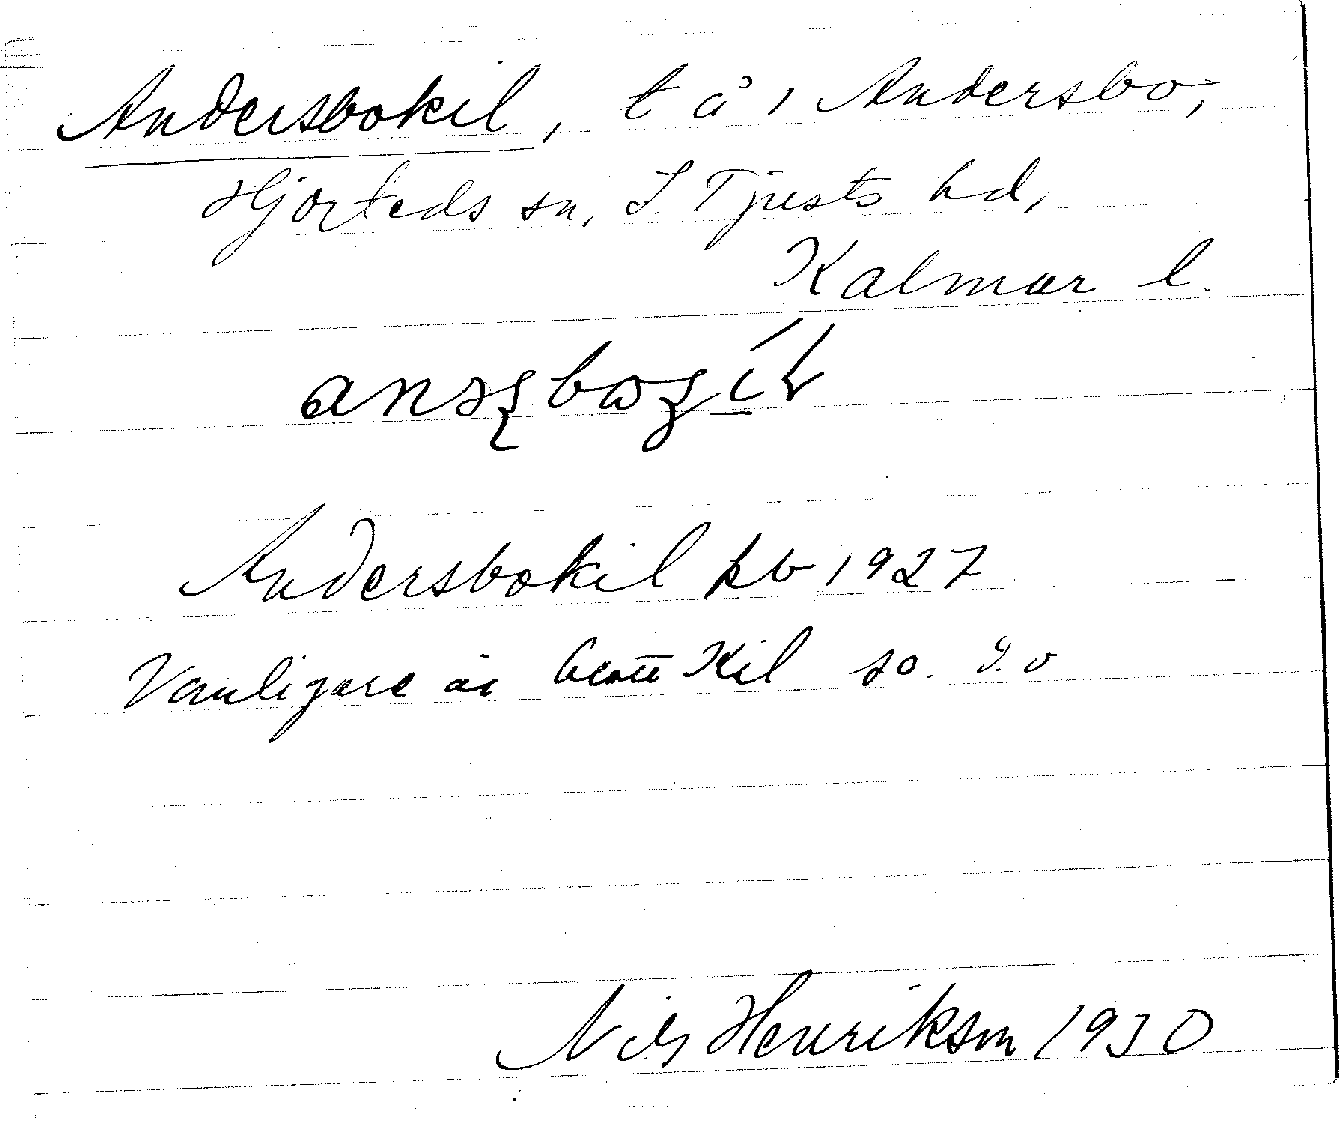 Andersbokil, t å i Andersbo,
Hjorteds sn, S Tjusts hd,
Kalmar l.
Andersbokil kb 1927
Vanligare är Kil so.
Nils Henrikson 1930